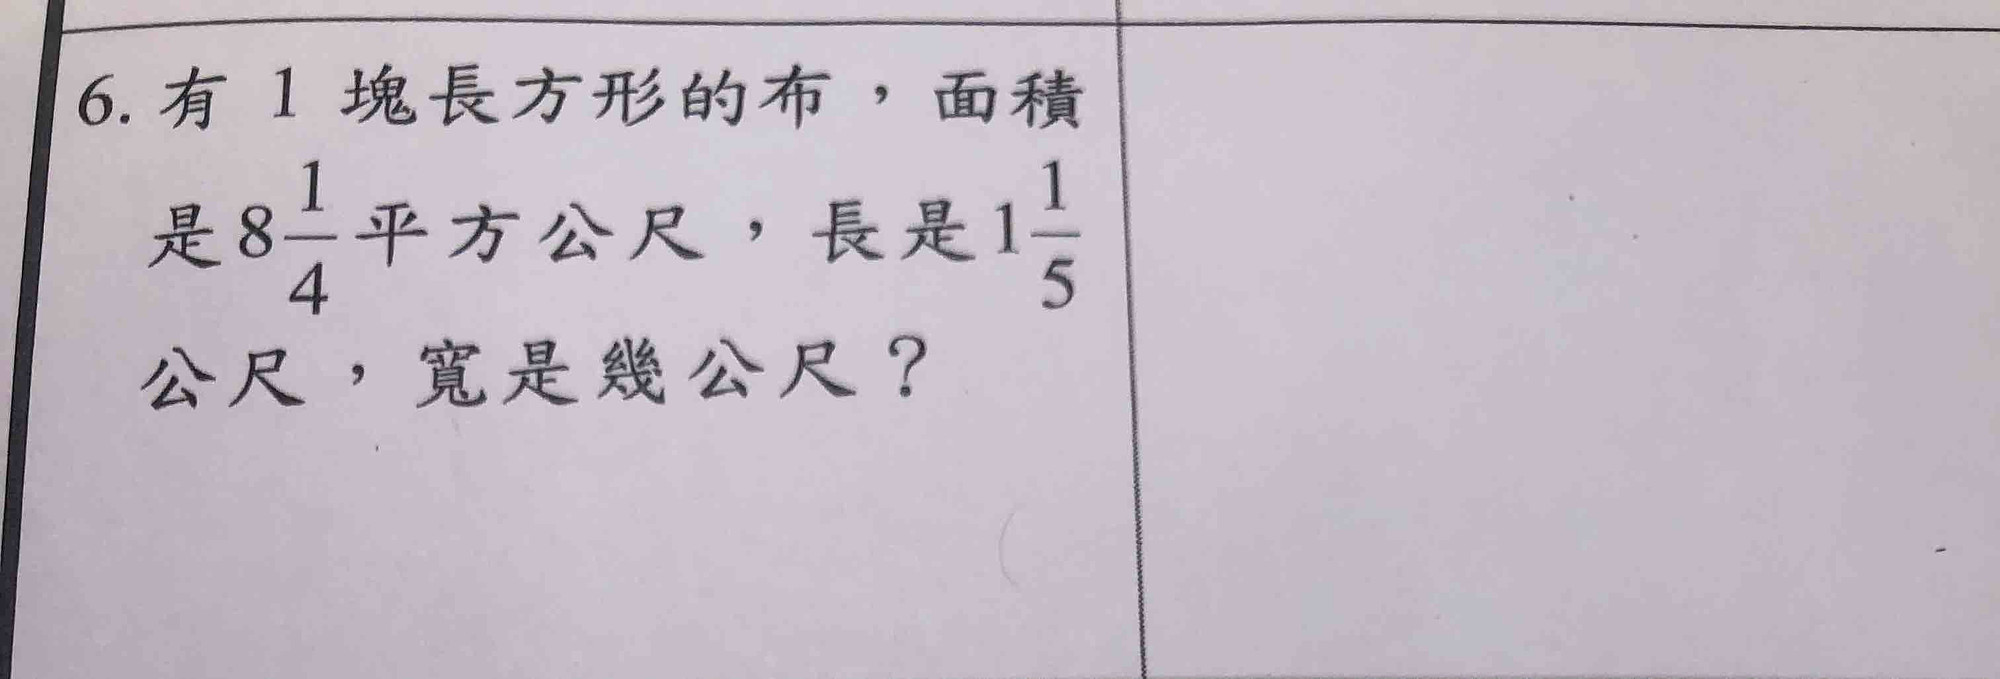 6. 有 1 塊長方形的布，面積
是8 1/4 平方公尺，長是1 1/5
公尺，寬是幾公尺？